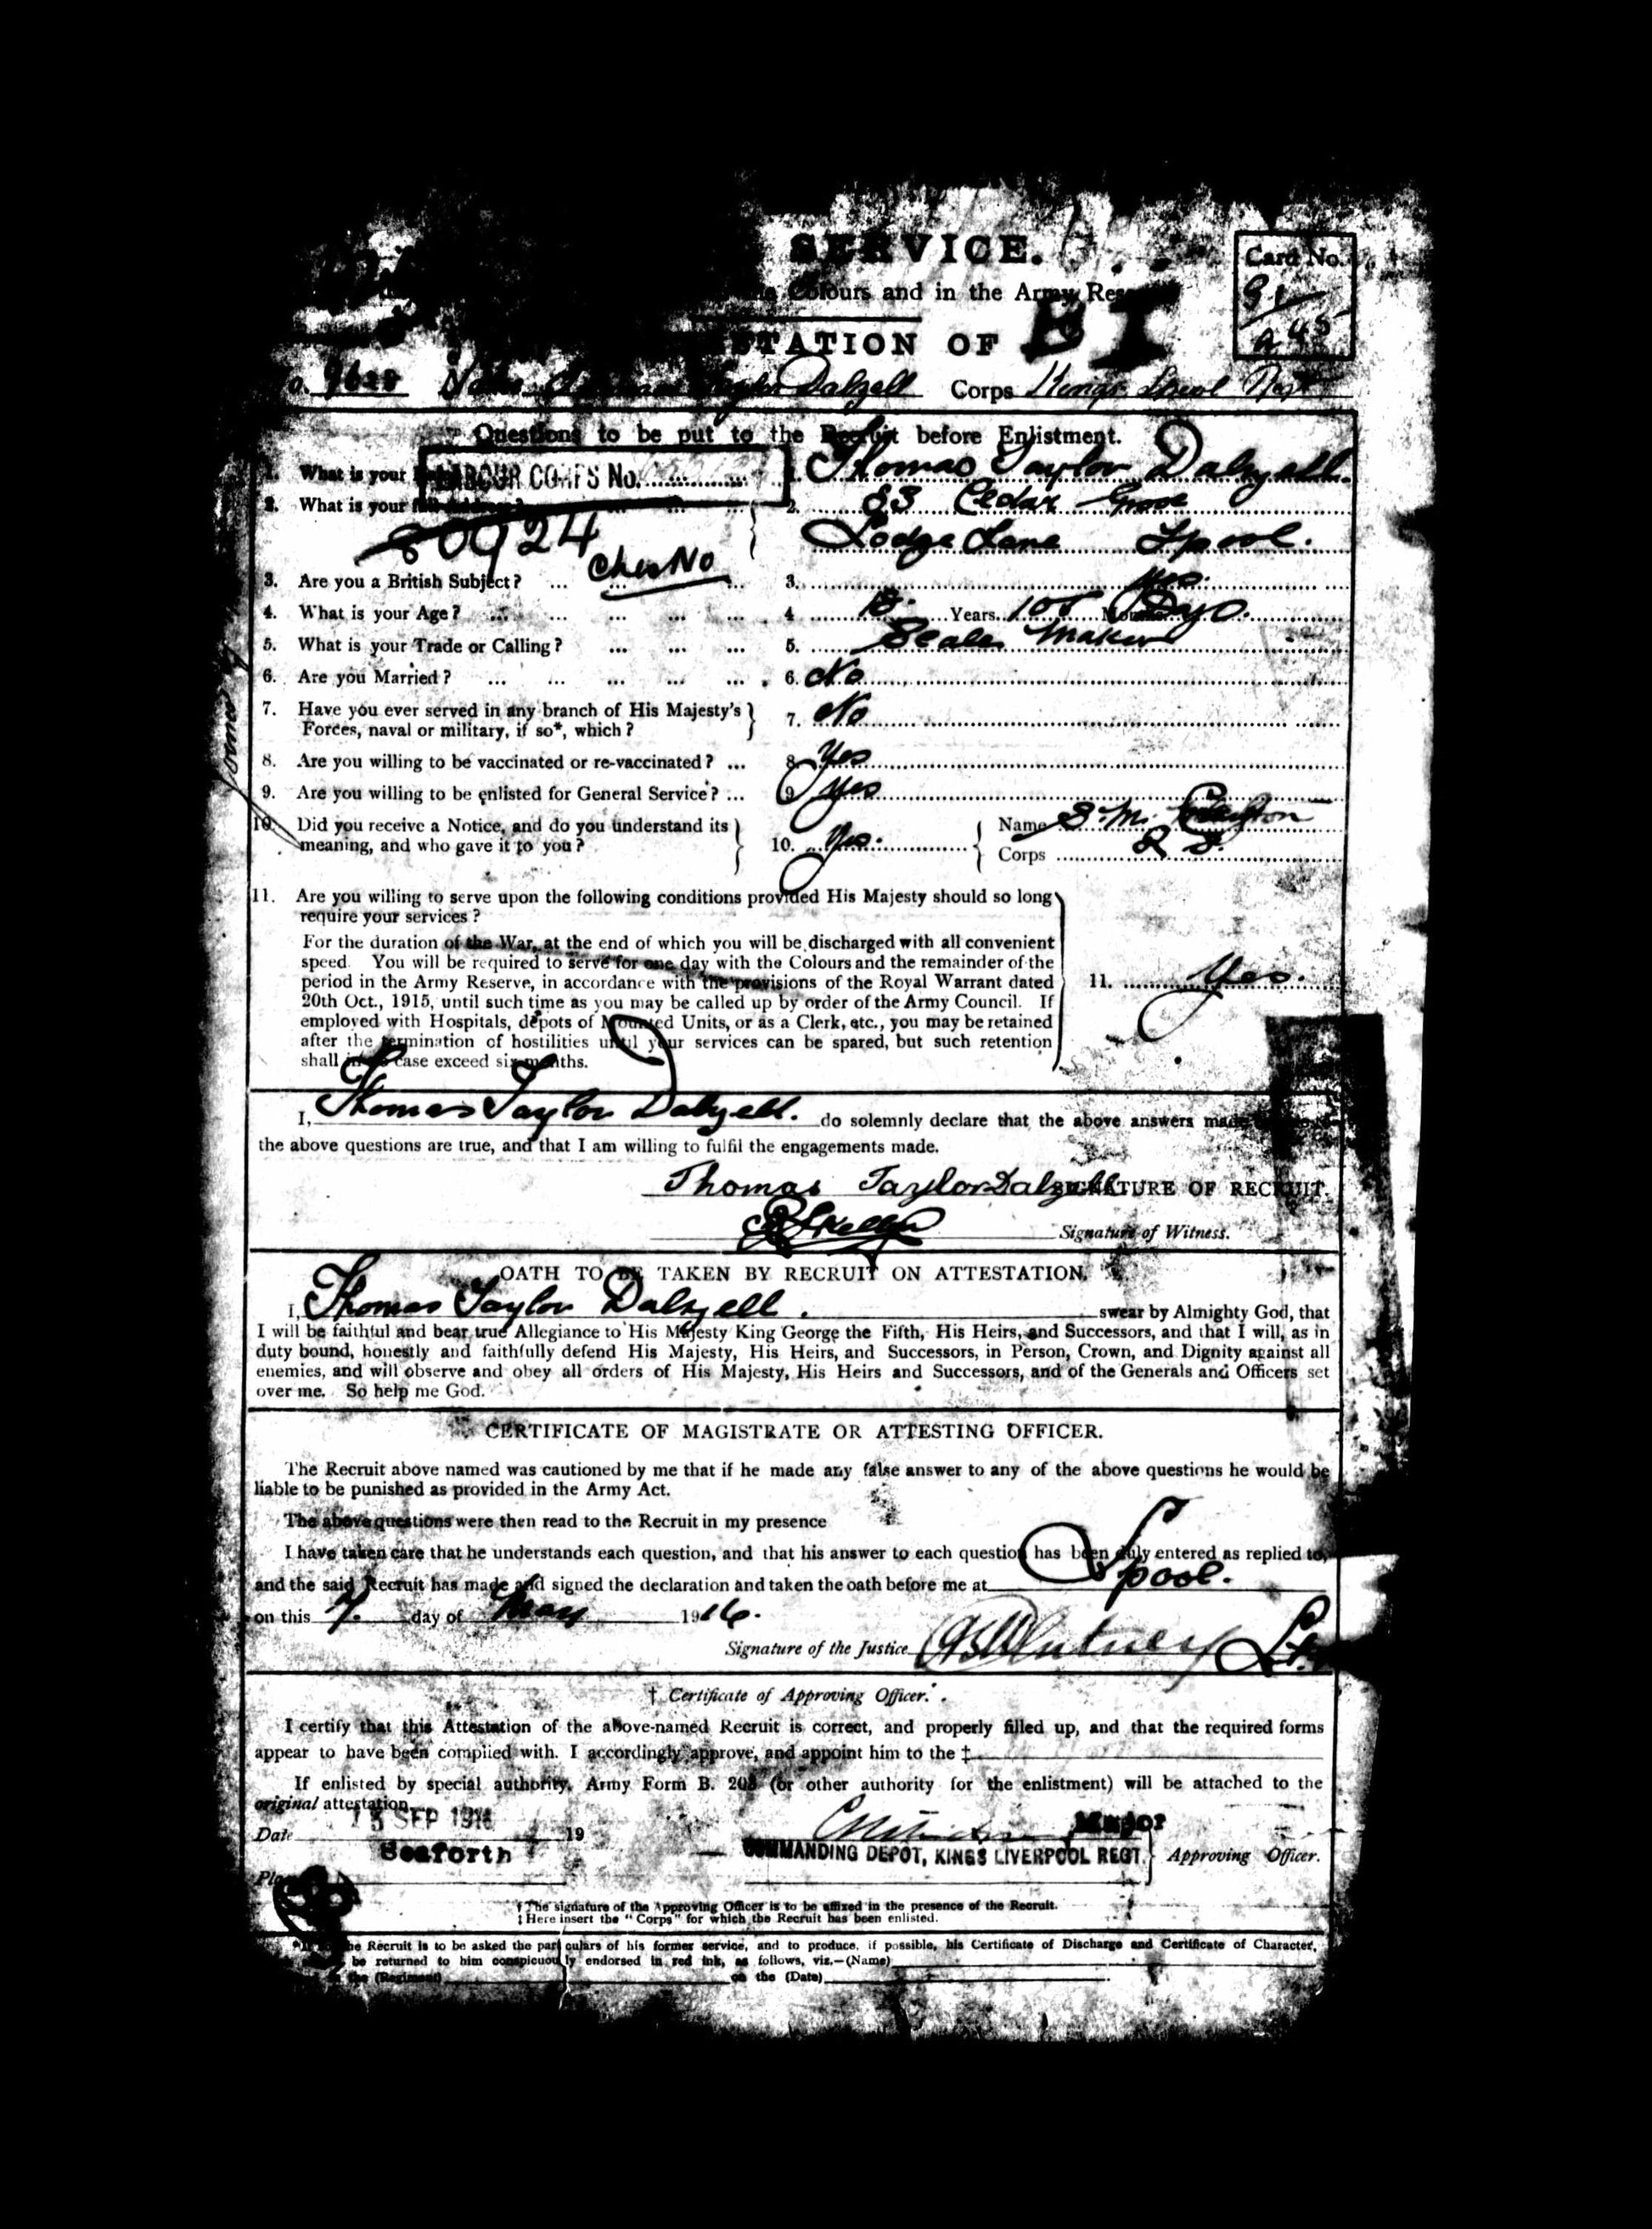 SERVICE.
Colours and in the Army Res
TATION OF B I
Card No.
No. Name Taylor Dalzell Corps Kings Lpool Regt
Questions to be put to the Recruit before Enlistment.
1. What is your LABOUR CORPS No. 1. Thomas Taylor Dalzell.
2. What is your 2. 83 Cedar Grove
80924 Lodge Lane Lpool.
Ches No
3. Are you a British Subject? ... 3. Yes.
4. What is your Age? ... 4 18 Years 105 Months Days.
5. What is your Trade or Calling? ... 5. Scale Maker
6. Are you Married? ... 6. No
7. Have you ever served in any branch of His Majesty's
Forces, naval or military, if so*, which? 7. No
8. Are you willing to be vaccinated or re-vaccinated? ... 8. Yes
9. Are you willing to be enlisted for General Service? ... 9 Yes
10. Did you receive a Notice, and do you understand its
meaning, and who gave it to you? 10. Yes. Name S. M.
Corps
11. Are you willing to serve upon the following conditions provided His Majesty should so long
require your services?
For the duration of the War, at the end of which you will be discharged with all convenient
speed. You will be required to serve for one day with the Colours and the remainder of the
period in the Army Reserve, in accordance with the provisions of the Royal Warrant dated
20th Oct., 1915, until such time as you may be called up by order of the Army Council. If
employed with Hospitals, depots of Mounted Units, or as a Clerk, etc., you may be retained
after the termination of hostilities until your services can be spared, but such retention
shall in no case exceed six months.
11. Yes.
I, Thomas Taylor Dalzell. do solemnly declare that the above answers made
the above questions are true, and that I am willing to fulfil the engagements made.
Thomas Taylor Dalzell SIGNATURE OF RECRUIT.
Signature of Witness.
OATH TO BE TAKEN BY RECRUIT ON ATTESTATION.
I, Thomas Taylor Dalzell. swear by Almighty God, that
I will be faithful and bear true Allegiance to His Majesty King George the Fifth, His Heirs, and Successors, and that I will, as in
duty bound, honestly and faithfully defend His Majesty, His Heirs, and Successors, in Person, Crown, and Dignity against all
enemies, and will observe and obey all orders of His Majesty, His Heirs and Successors, and of the Generals and Officers set
over me. So help me God.
CERTIFICATE OF MAGISTRATE OR ATTESTING OFFICER.
The Recruit above named was cautioned by me that if he made any false answer to any of the above questions he would be
liable to be punished as provided in the Army Act.
The above questions were then read to the Recruit in my presence
I have taken care that he understands each question, and that his answer to each question has been duly entered as replied to,
and the said Recruit has made and signed the declaration and taken the oath before me at Lpool.
on this 7. day of May 1916.
Signature of the Justice Lt.
† Certificate of Approving Officer.
I certify that this Attestation of the above-named Recruit is correct, and properly filled up, and that the required forms
appear to have been complied with. I accordingly approve, and appoint him to the ‡
If enlisted by special authority, Army Form B. 203 (or other authority for the enlistment) will be attached to the
original attestation.
Date 15 SEP 1916 19 Major
Seaforth COMMANDING DEPOT, KINGS LIVERPOOL REGT. Approving Officer.
Place
† The signature of the Approving Officer is to be affixed in the presence of the Recruit.
‡ Here insert the "Corps" for which the Recruit has been enlisted.
the Recruit is to be asked the particulars of his former service, and to produce, if possible, his Certificate of Discharge and Certificate of Character,
be returned to him conspicuously endorsed in red ink, as follows, viz.—(Name)
the (Regiment) on the (Date)